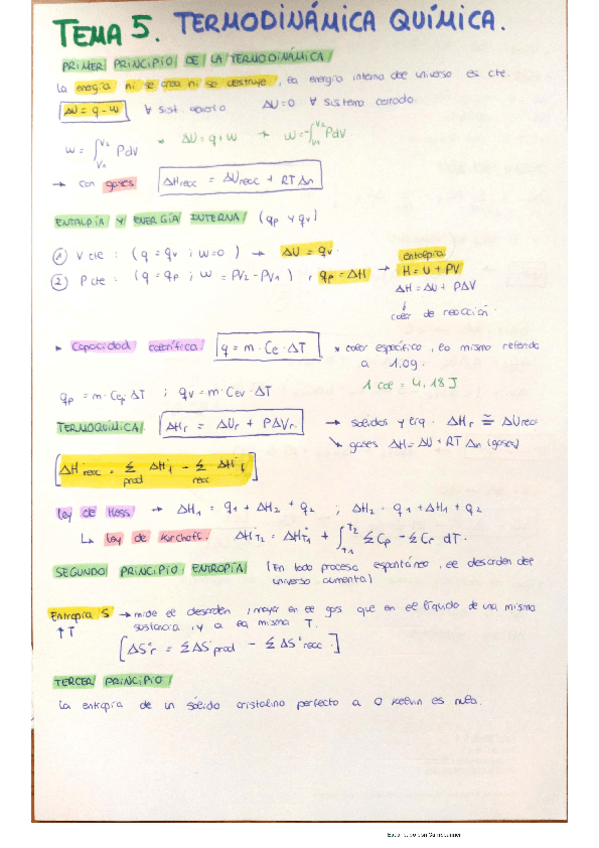 TEMA 5. TERMODINÁMICA QUÍMICA.
PRIMER PRINCIPIO DE LA TERMODINÁMICA/
La energía ni se crea ni se destruye, la energía interna del universo es cte.
ΔU = q - w ∀ sist. abierto ΔU=0 ∀ sistema cerrado.
w = ∫V1 V2 PdV * ΔU = q + w → w = -∫V1 V2 PdV
→ con gases ΔHreac = ΔUreac + RTΔn
ENTALPÍA Y ENERGÍA INTERNA/ (qp y qv)
① V cte : (q = qv ; w=0) → ΔU = qv.
entalpía
② P cte : (q = qp ; w = PV2 - PV1), qp = ΔH → H = U + PV
ΔH = ΔU + PΔV
↓
calor de reacción
▸ Capacidad calorífica/ q = m · Ce · ΔT * calor específico, lo mismo referido
a 1.0g.
1 cal = 4,18 J
qp = m · Cep · ΔT ; qv = m · Cev · ΔT
TERMOQUÍMICA/ ΔHr = ΔUr + PΔVr → sólidos y líq. ΔHr ≅ ΔUreac
↘ gases ΔH = ΔU + RTΔn (gases)
[ΔH°reac = Σprod ΔH°f - Σreac ΔH°f]
Ley de Hess → ΔH1 = q1 + ΔH2 + q2 ; ΔH2 = q1 + ΔH1 + q2
↳ Ley de Kirchoff. ΔH°T2 = ΔH°T1 + ∫T1 T2 ΣCp - ΣCr dT.
SEGUNDO PRINCIPIO/ ENTROPÍA/ (En todo proceso espontáneo, el desorden del
universo aumenta)
Entropía S → mide el desorden, mayor en el gas que en el líquido de una misma
↑T sustancia, y a la misma T.
[ΔS°r = ΣΔS°prod - ΣΔS°reac.]
TERCER PRINCIPIO/
La entropía de un sólido cristalino perfecto a 0 kelvin es nula.